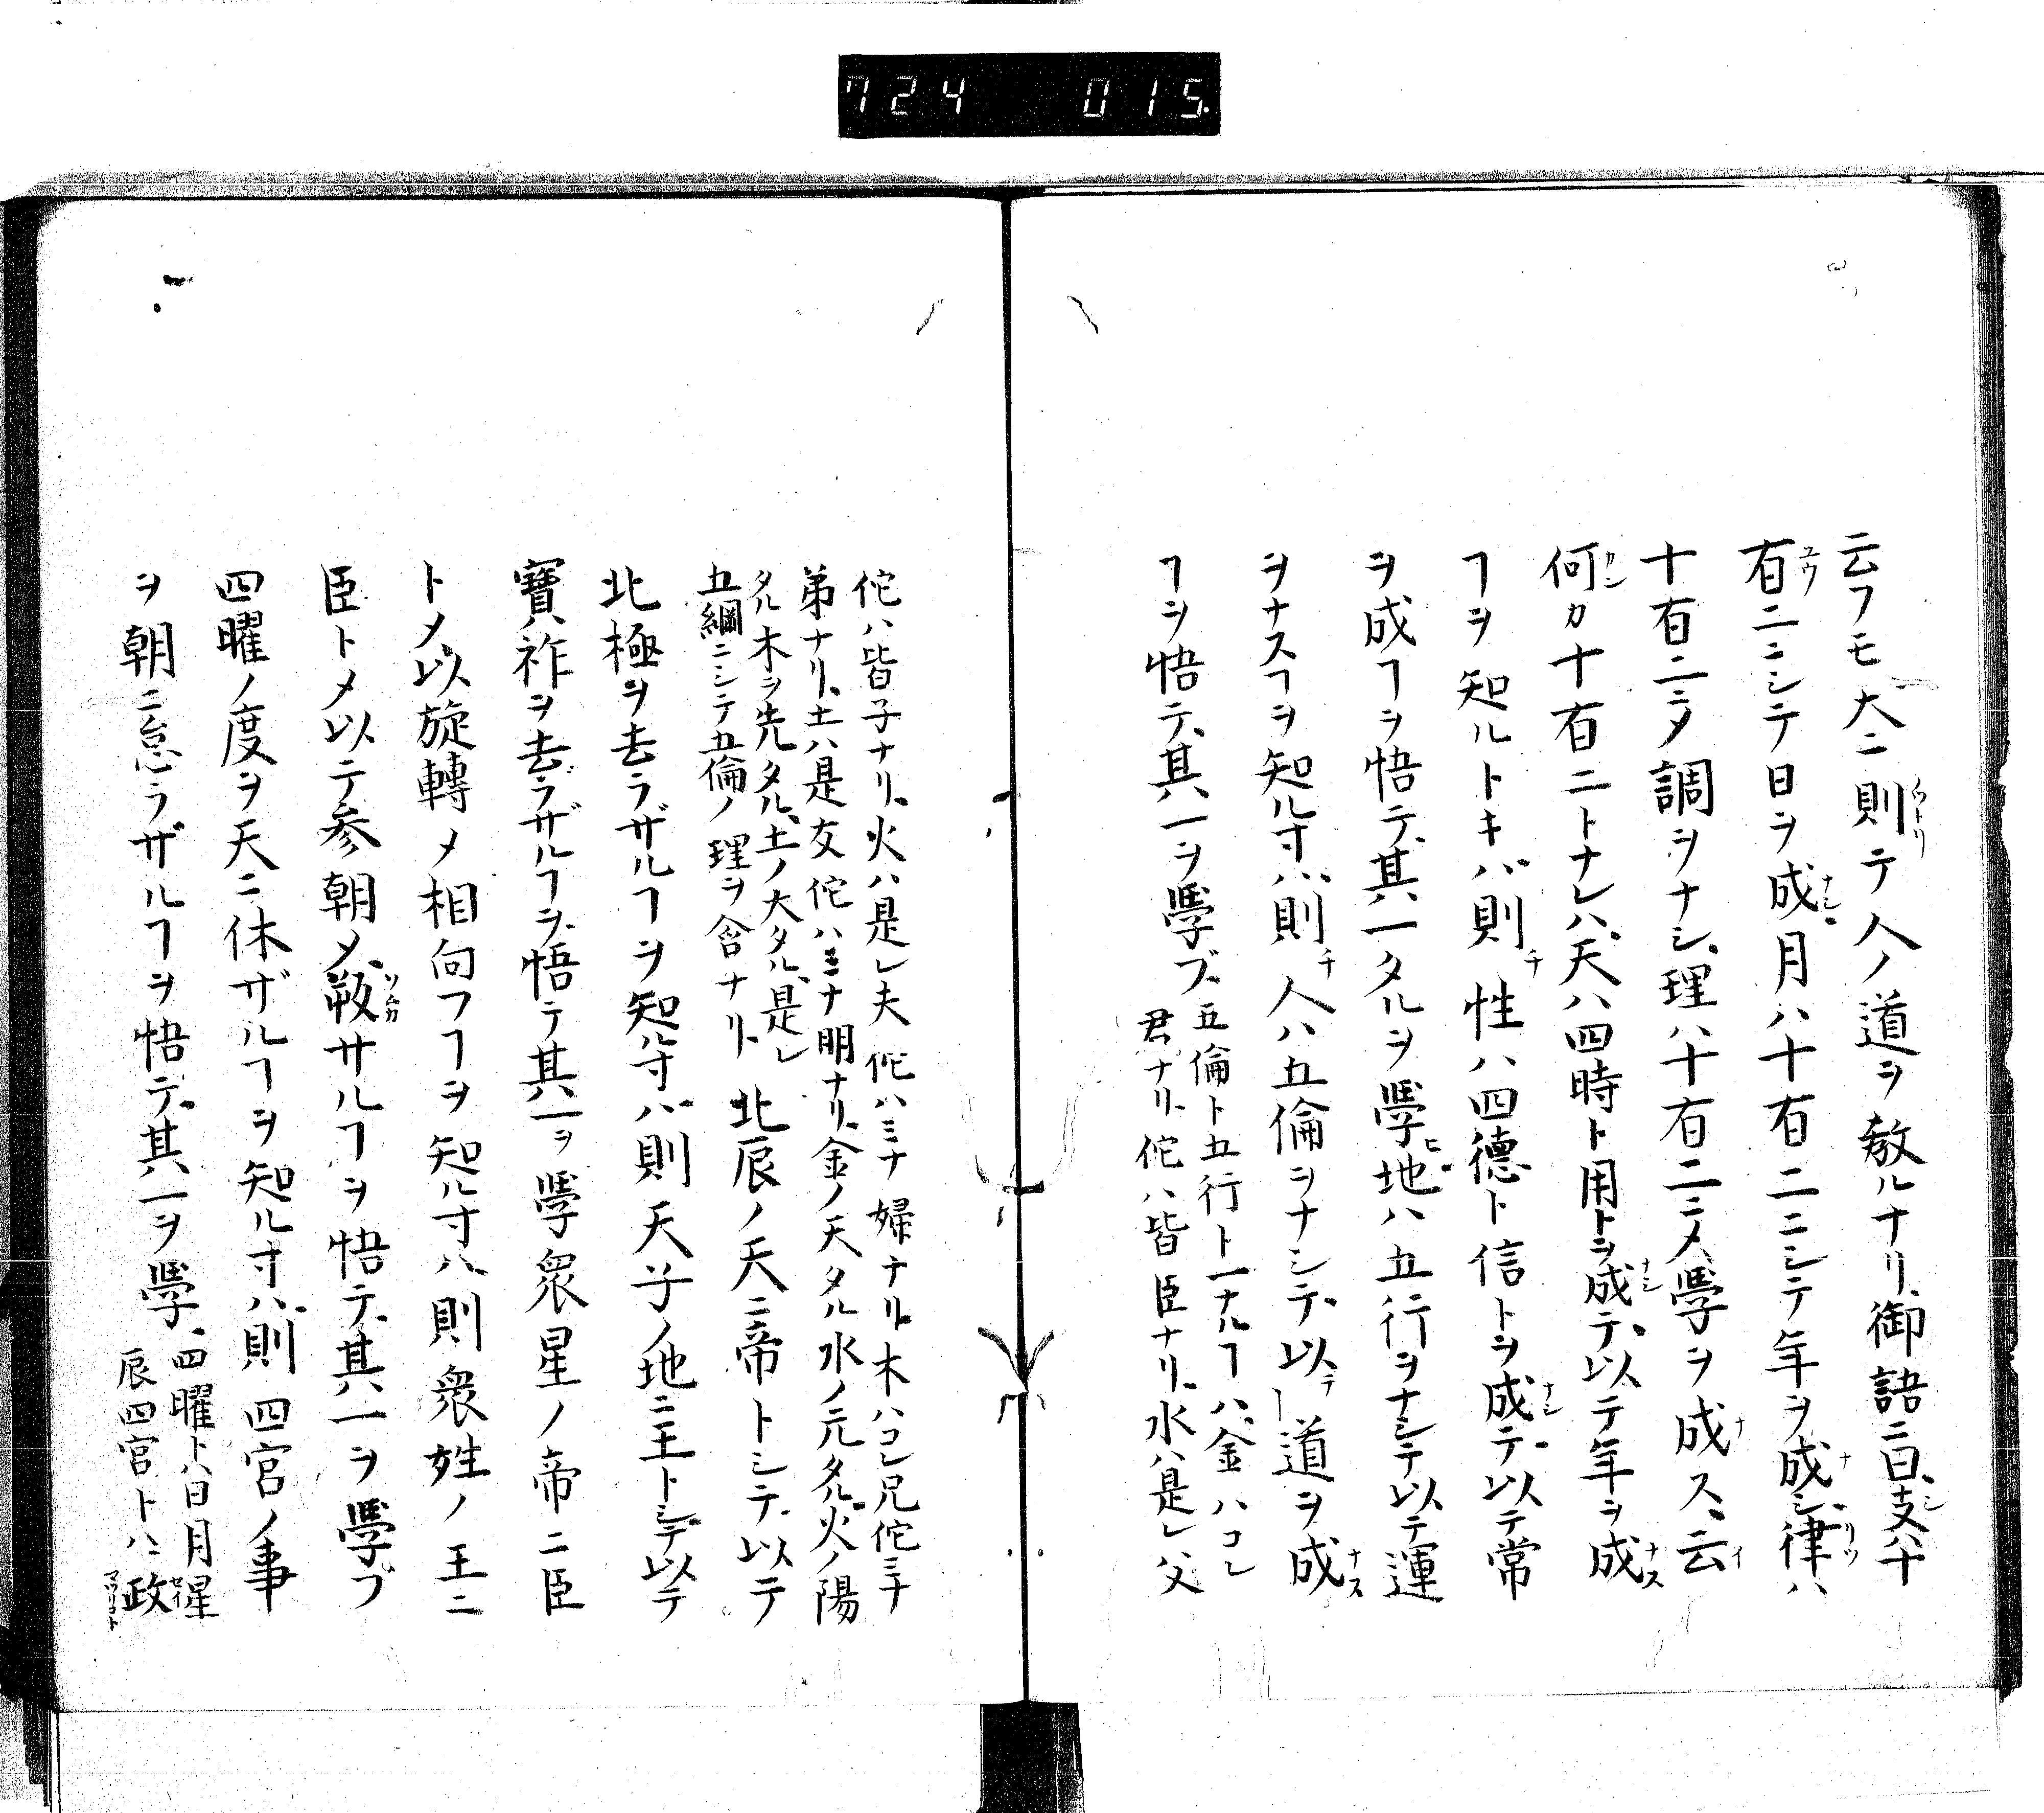 724 015
云フモ大ニ則テ人ノ道ヲ教ルナリ、御語ニ曰、支ハ十
有二ニシテ日ヲ成、月ハ十有二ニシテ年ヲ成シ、律ハ
十有二ニ〆調ヲナシ、理ハ十有二ニ〆學ヲ成ス、云
何カ十有二トナレハ、天ハ四時ト用トヲ成テ、以テ年ヲ成
ヿヲ知ルトキバ則性ハ四德ト信トヲ成テ、以テ常
ヲ成ヿヲ悟テ、其一タルヲ學、地ハ五行ヲナシテ以テ運
ヲナスヿヲ知ル寸ハ、則人ハ五倫ヲナシテ、以テ道ヲ成
ヿヲ悟テ、其一ヲ學ブ、五倫ト五行ト一ナルヿハ、金ハコレ
君ナリ、佗ハ皆臣ナリ、水ハ是レ父
佗ハ皆子ナリ、火ハ是レ夫佗ハミナ婦ナリ、木ハコレ兄佗ミナ
弟ナリ、土ハ是友佗ハミナ朋ナリ、金ノ天タル水ノ元タル、火ノ陽
タル木ヲ先タル、土ノ大タル、是レ
五綱ニシテ五倫ノ理ヲ含ナリ、北辰ノ天ニ帝トシテ、以テ
北極ヲ去ラザルヿヲ知ル寸ハ、則天子ノ地ニ王トシテ以テ
寶祚ヲ去ラザルヿヲ、悟テ其一ヲ學、衆星ノ帝ニ臣
ト〆、以旋轉〆相向フヿヲ知ル寸ハ、則衆姓ノ王ニ
臣ト〆以テ參朝〆、叛サルヿヲ悟テ、其一ヲ學ブ
四曜ノ度ヲ天ニ休ザルヿヲ知ル寸ハ、則四官ノ事
ヲ朝ニ怠ラザルヿヲ悟テ、其一ヲ學、四曜トハ日月星
辰四官トハ、政